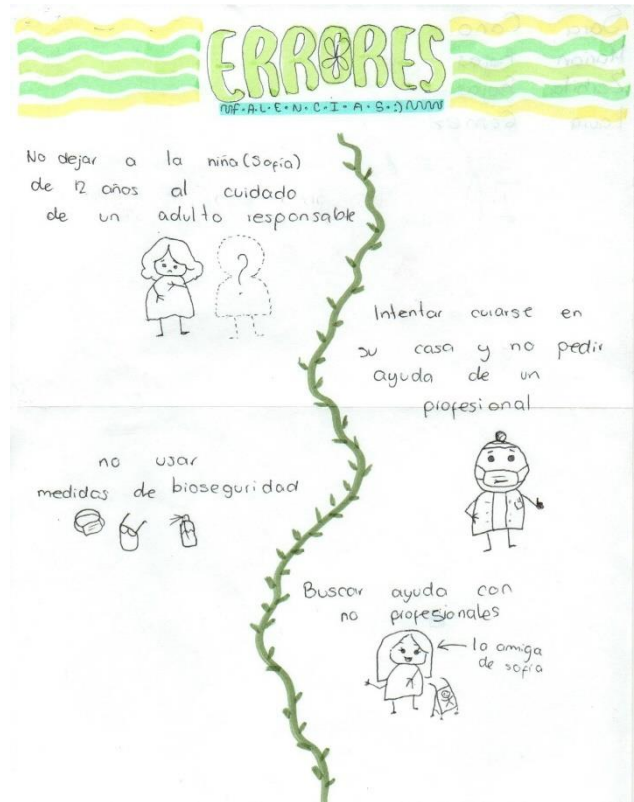 ERRORES
F·A·L·E·N·C·I·A·S·:)
No dejar a la niña (Sofía)
de 12 años al cuidado
de un adulto responsable
?
Intentar curarse en
su casa y no pedir
ayuda de un
profesional
no usar
medidas de bioseguridad
Buscar ayuda con
no profesionales
la amiga
de sofía